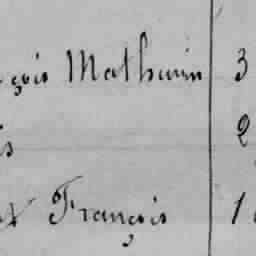 çois Mathurin 3
is 2
x François 1